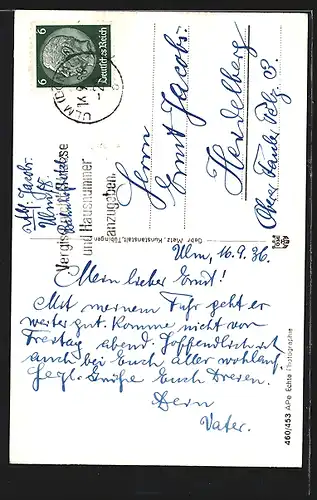 6 Deutsches Reich 6
ULM (DONAU)
Vergiß nicht Straße
und Hausnummer
anzugeben.
Abs. Jacob.
Ulm
Herrn
Ernst Jacob.
Heidelberg
Gebr. Metz, Kunstanstalt, Tübingen
Ulm, 16.9.36.
Mein lieber Ernst!
Mit meinem Fuß geht es
weiter gut. Komme nicht vor
Freitag abend. Hoffendlich ist
auch bei Euch aller wohlauf.
Herzl. Grüße Euch
Dein
Vater.
460/453 APe Echte Photographie